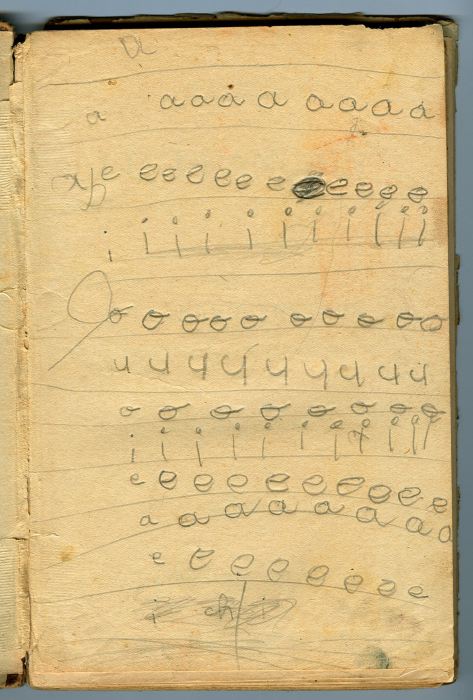 a a a a a a a a a
e e e e e e e e e e e e
i i i i i i i i i i i
o o o o o o o o o o
u u u u u u u u u
o o o o o o o o
i i i i i i i i i i i
e e e e e e e e e e
a a a a a a a a
e e e e e e e e
i ch i